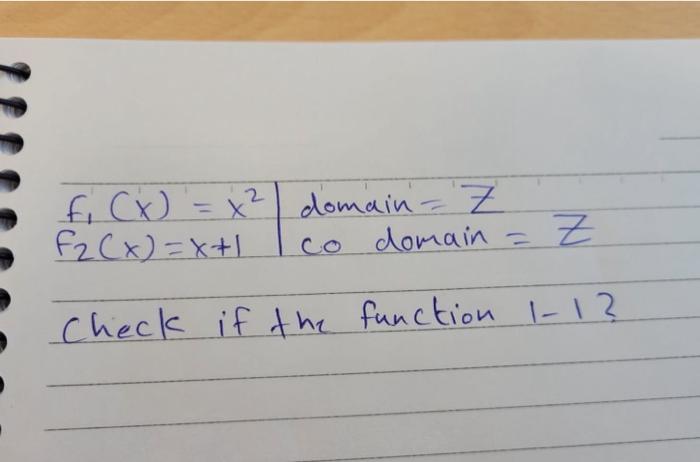 f₁ (x) = x² | domain = Z
f2(x)=x+1 | co domain = Z
Check if the function 1-1?